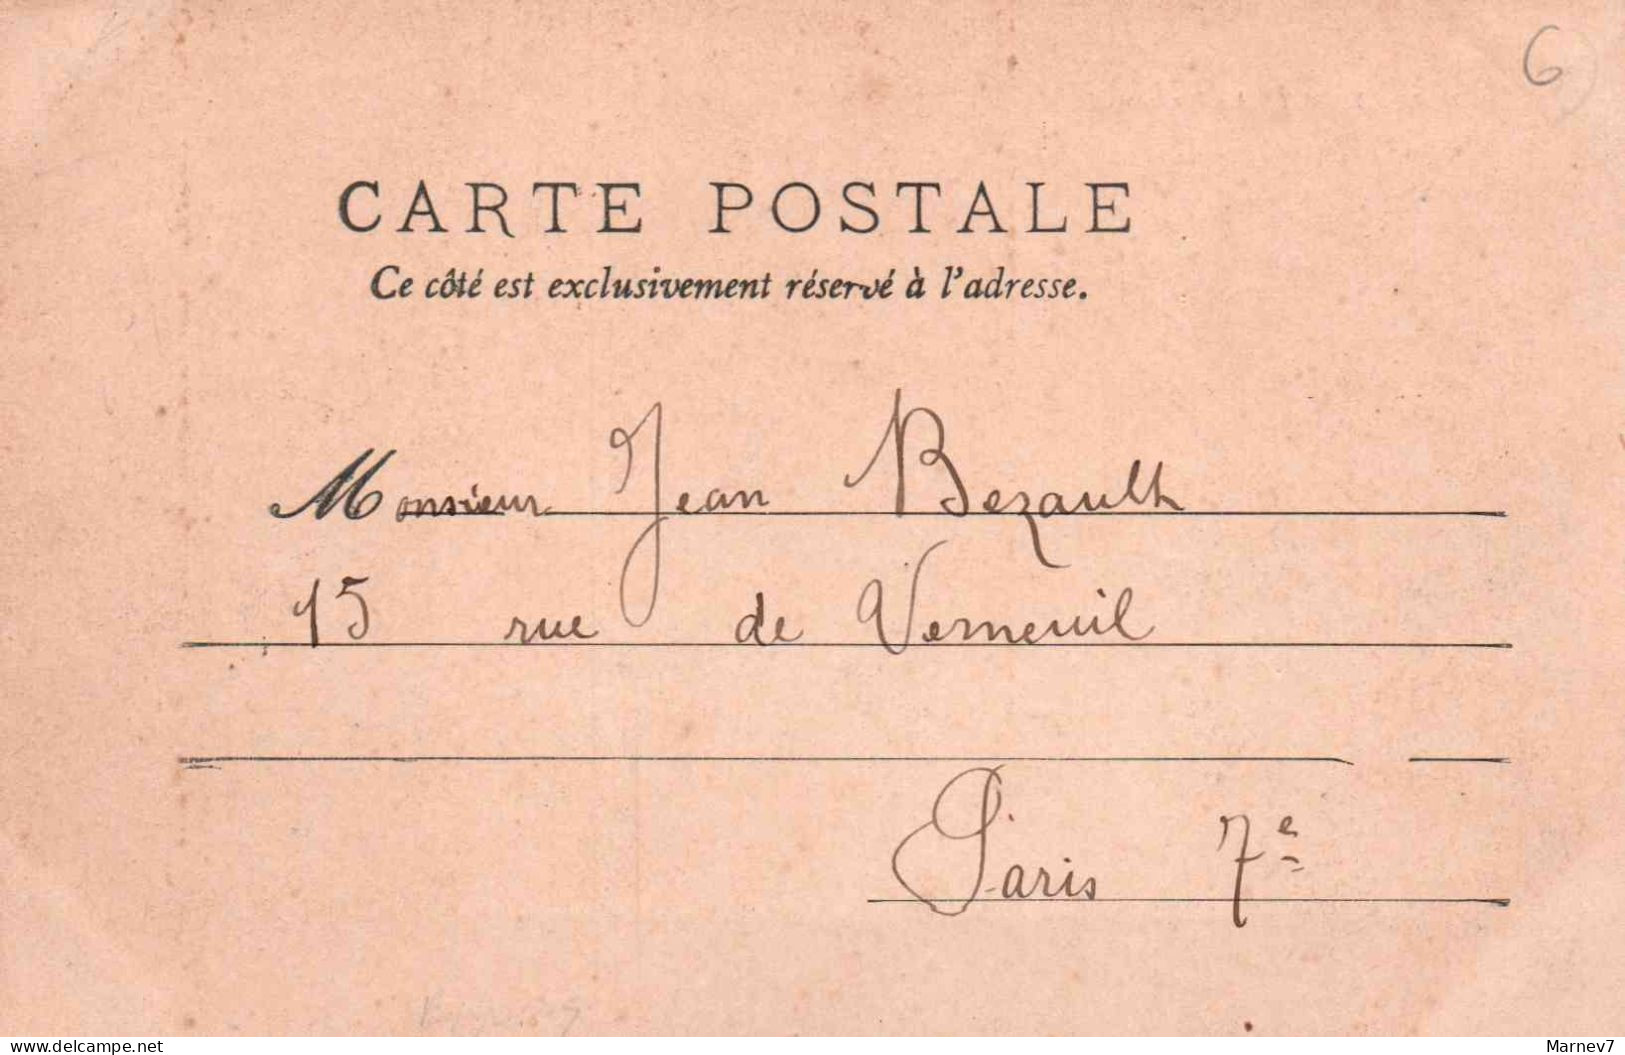 6
CARTE POSTALE
Ce côté est exclusivement réservé à l'adresse.
Monsieur Jean Bezault
15 rue de Verneuil
Paris 7e
delcampe.net
Marnev7